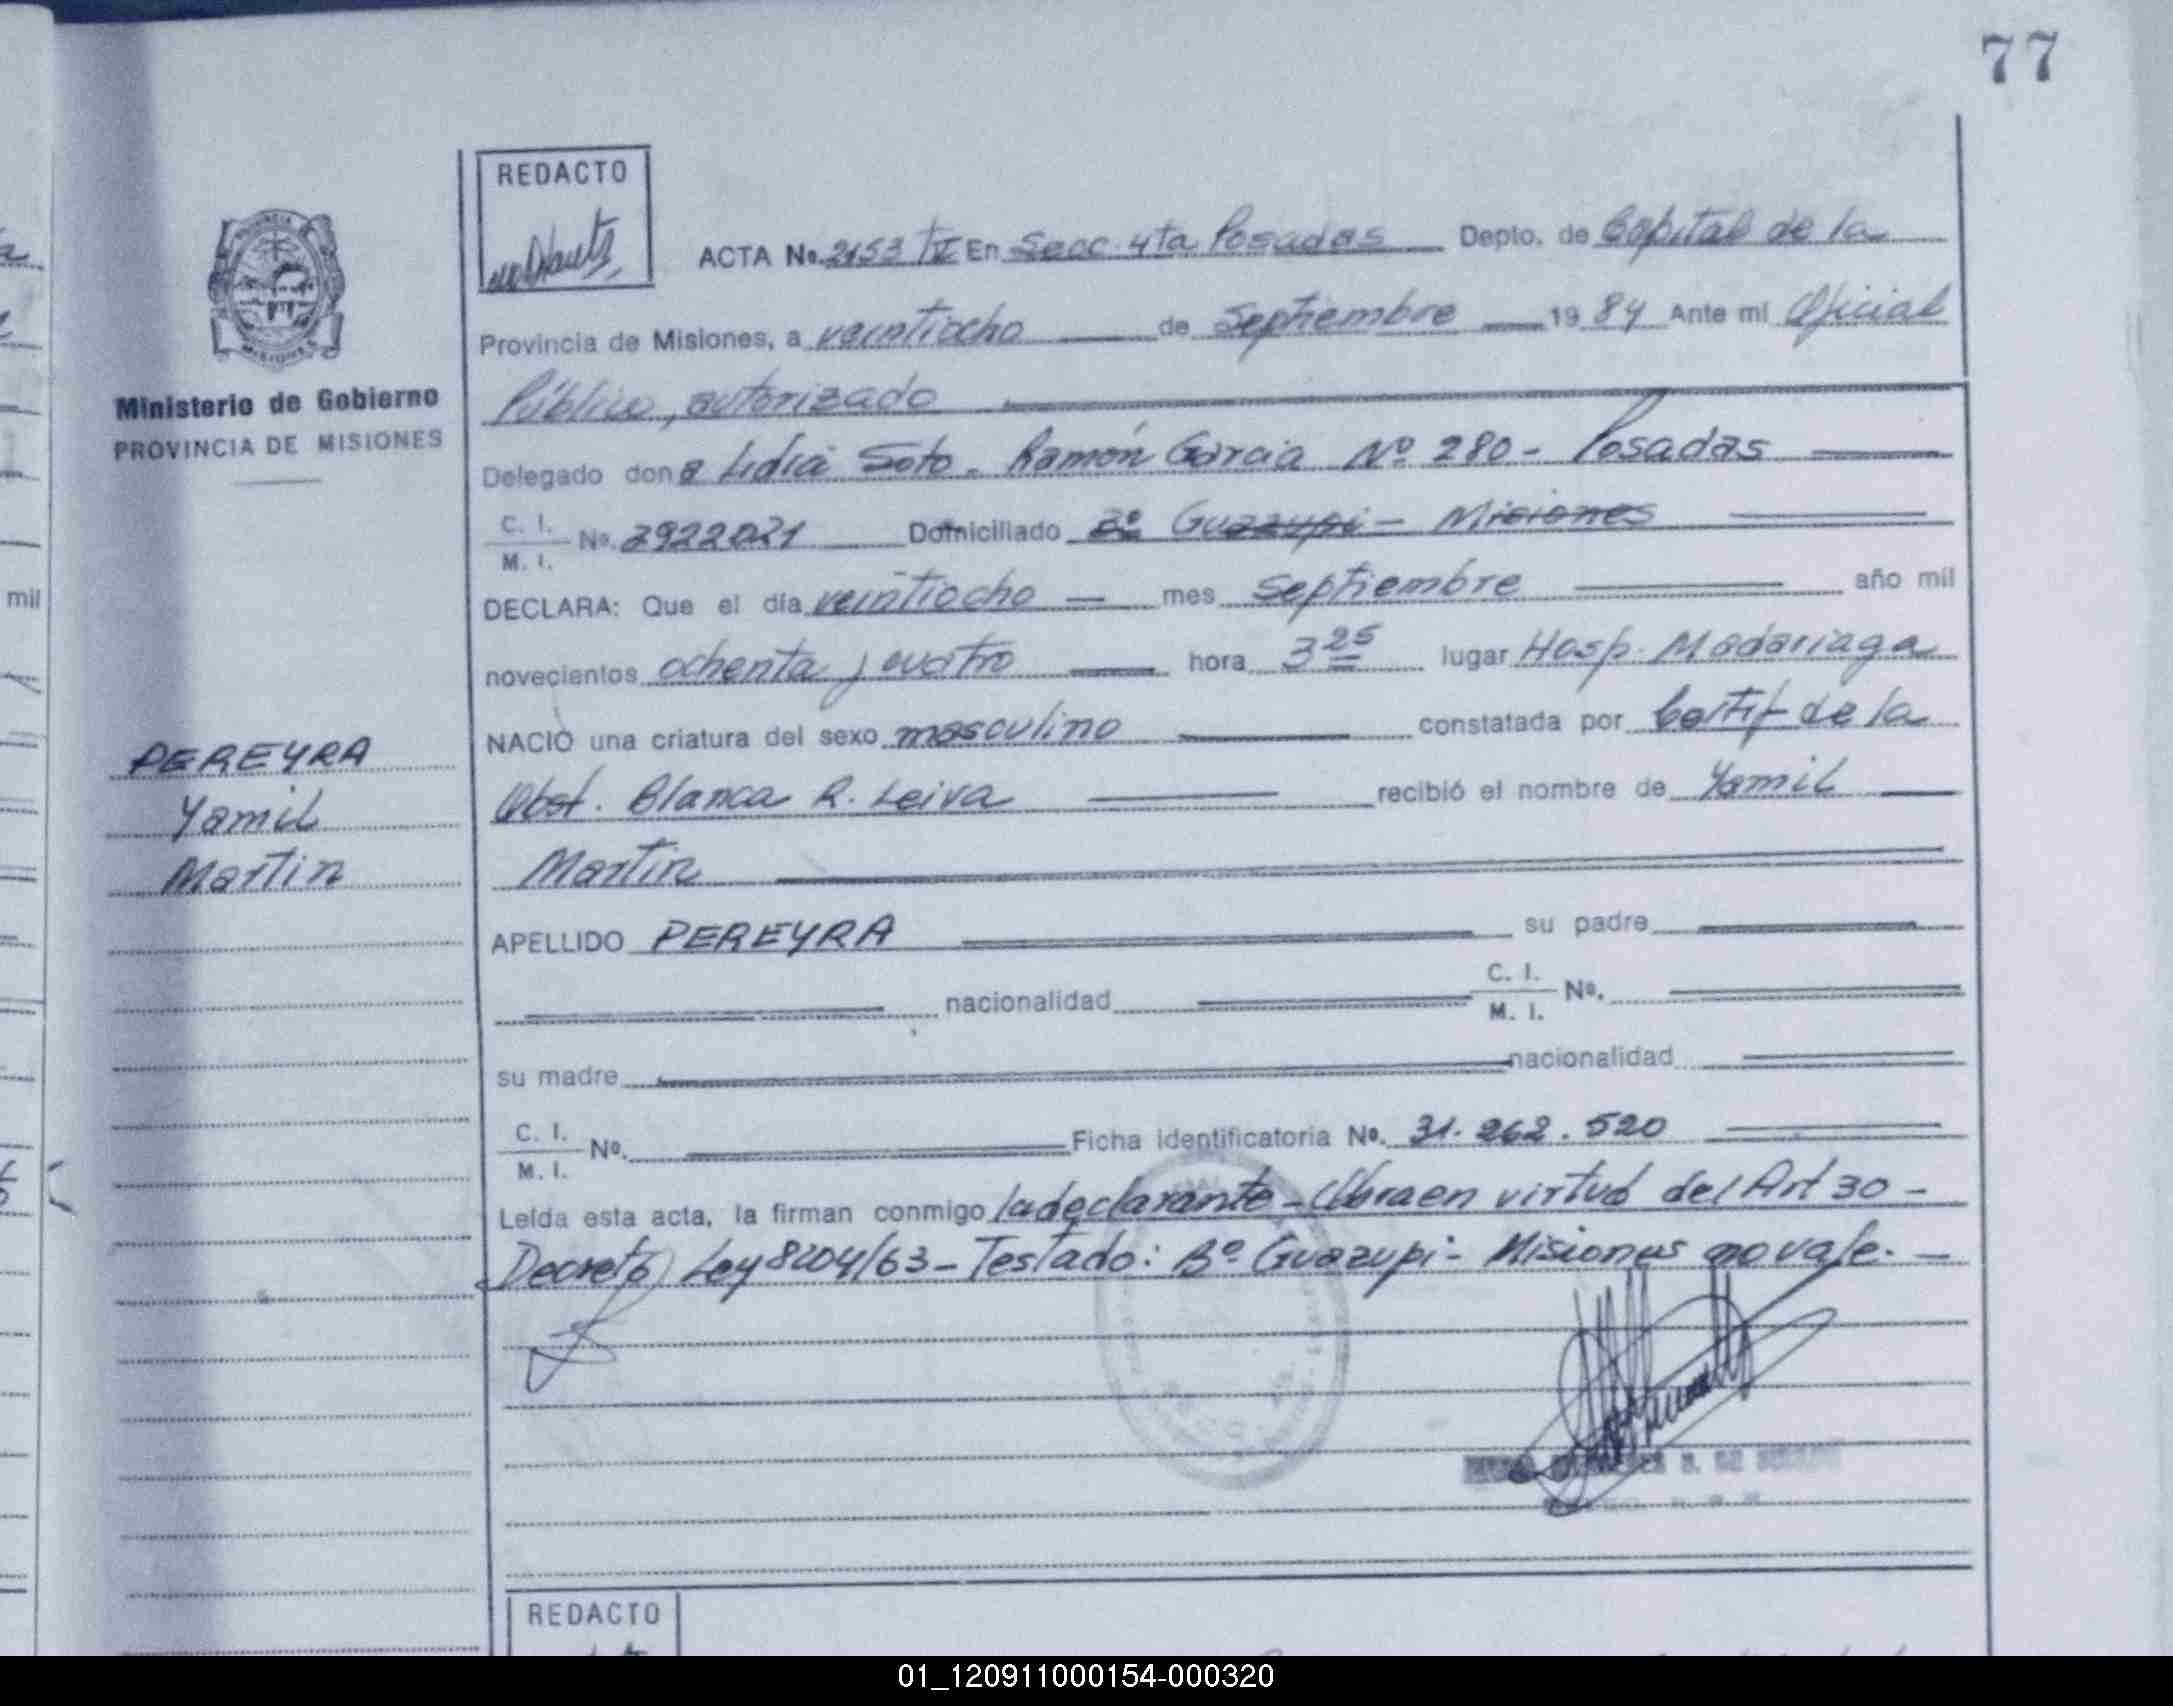 77
REDACTO
ACTA No. 2153 T V En Secc. 4ta Posadas Depto. de Capital de la
Provincia de Misiones, a veintiocho de Septiembre 1984 Ante mi Oficial
Ministerio de Gobierno
PROVINCIA DE MISIONES
Público, autorizado
Delegado don a Lidia Soto - Ramón Garcia Nº 280 - Posadas
C. I.
M. I.
No. 3922021 Domiciliado Bº Guazupi - Misiones
DECLARA: Que el día veintiocho mes Septiembre año mil
novecientos ochenta y cuatro hora 3 25 lugar Hosp. Madariaga
NACIO una criatura del sexo masculino constatada por Certif de la
Obst. Blanca R. Leiva recibió el nombre de Yamil
Martin
PEREYRA
Yamil
Martin
APELLIDO PEREYRA su padre
nacionalidad C. I.
M. I. No.
su madre nacionalidad
C. I.
M. I. No. Ficha identificatoria No. 31.262.520
Leída esta acta, la firman conmigo la declarante - Obra en virtud del Art 30 -
Decreto Ley 8204/63 - Testado: Bº Guazupi - Misiones no vale. -
REDACTO
mil
01_120911000154-000320